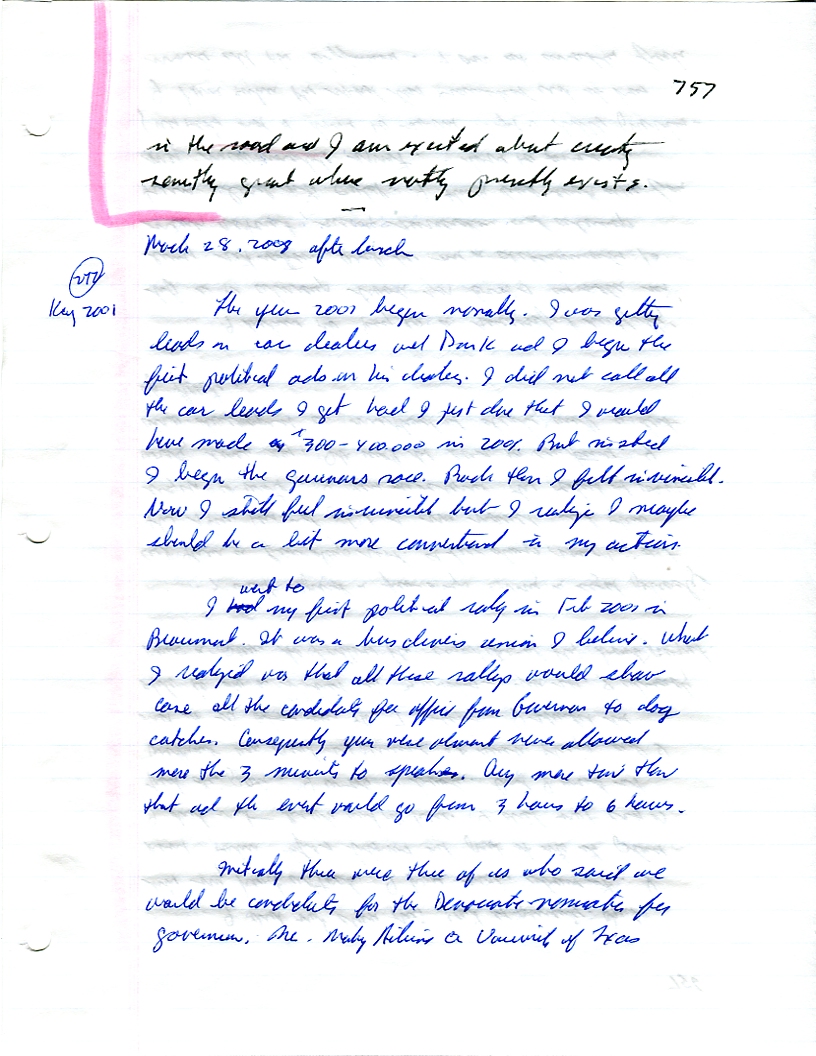 757
in the road and I am excited about creating
something great where nothing presently exists.
March 28, 2008 after lunch
Key 2001
The year 2001 began normally. I was getting
leads on car dealers and Bank and I began the
first political ads on his dealers. I did not call all
the car leads I got had I just done that I would
have made $300-400.000 in 2001. But instead
I began the governors race. Back then I felt invincible.
Now I still feel invincible but I realize I maybe
should be a bit more conservative in my actions.
went to
I my first political rally in Feb 2001 in
Beaumont. It was a bus drivers union I believe. What
I realized was that all these rallys would show
case all the candidates for office from Governor to dog
catcher. Consequently you were almost never allowed
more the 3 minutes to speak. Any more time then
that and the event would go from 3 hours to 6 hours.
Initially there were three of us who said we
would be candidates for the Democratic nomination for
governor. Me. a University of Texas